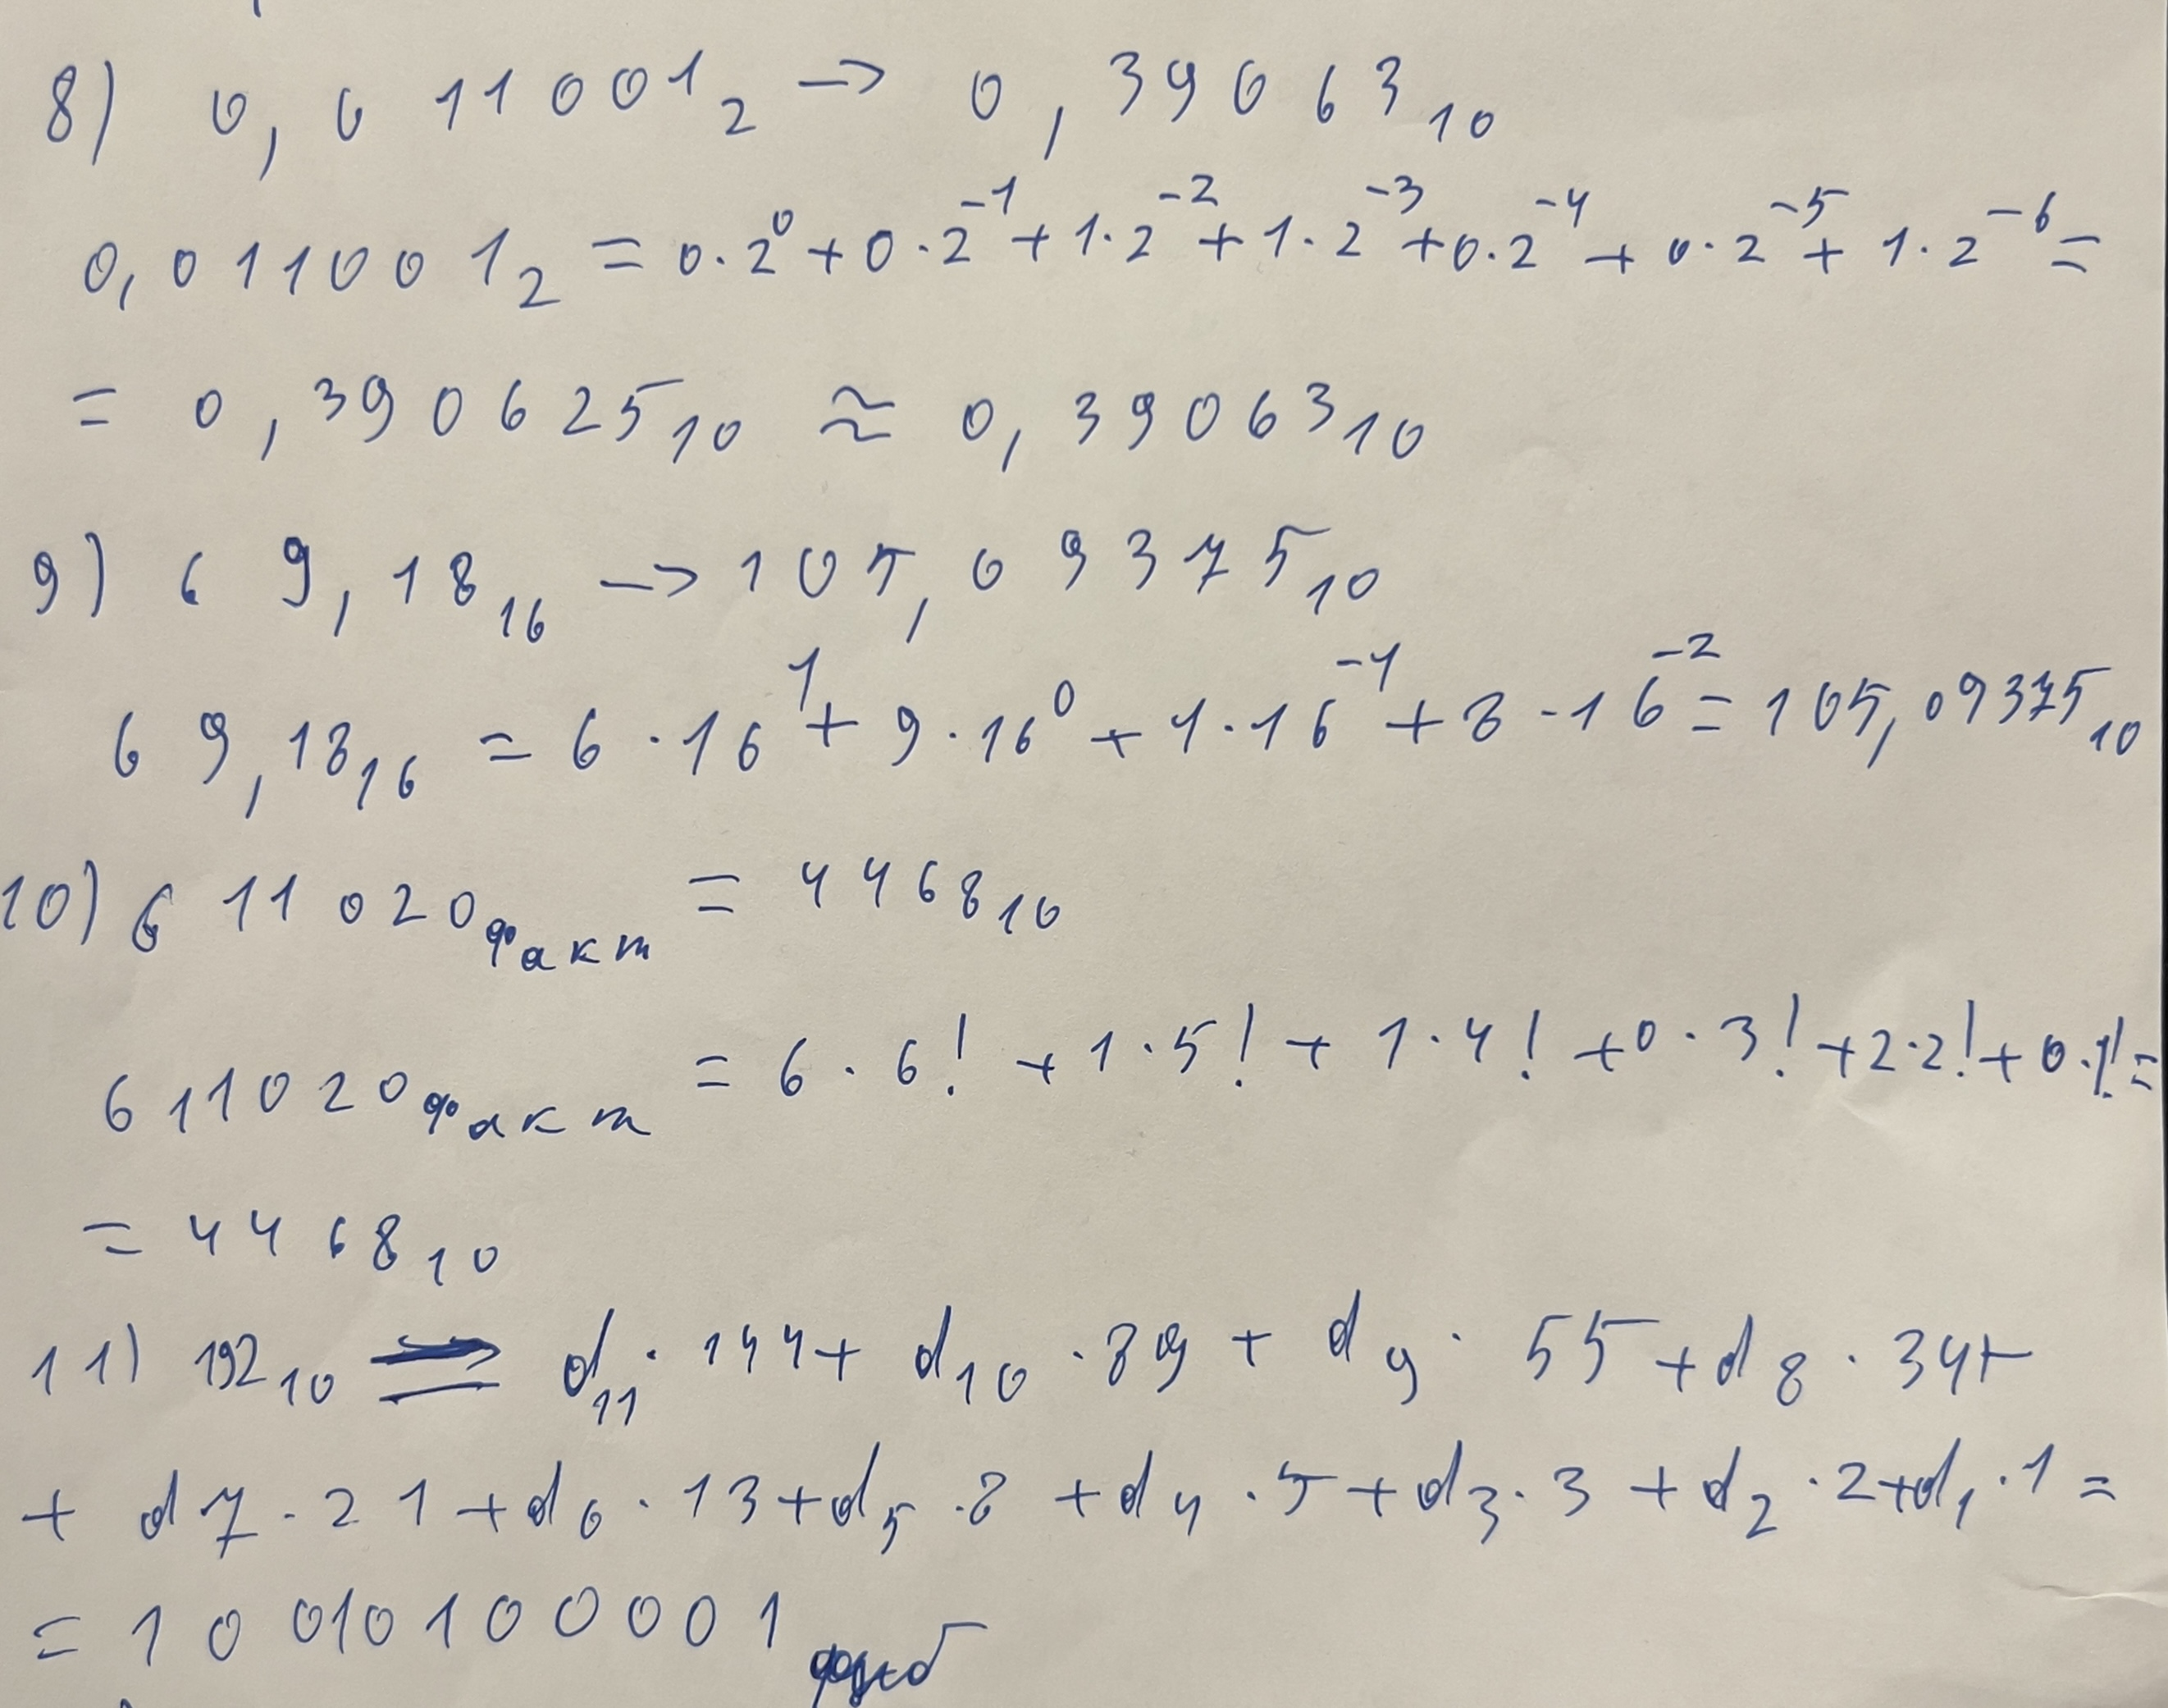 8) 0,011001₂ → 0,39063₁₀
0,011001₂ = 0·2⁰+0·2⁻¹+1·2⁻²+1·2⁻³+0·2⁻⁴+0·2⁻⁵+1·2⁻⁶=
= 0,390625₁₀ ≈ 0,39063₁₀
9) 69,18₁₆ → 105,09375₁₀
69,18₁₆ = 6·16¹+9·16⁰+1·16⁻¹+8·16⁻²=105,09375₁₀
10) 611020факт = 4468₁₀
611020факт = 6·6!+1·5!+1·4!+0·3!+2·2!+0·1!=
= 4468₁₀
11) 192₁₀ = d₁₁·144+d₁₀·89+d₉·55+d₈·34+
+d7·21+d₆·13+d₅·8+d₄·5+d₃·3+d₂·2+d₁·1=
= 10010100001фиб